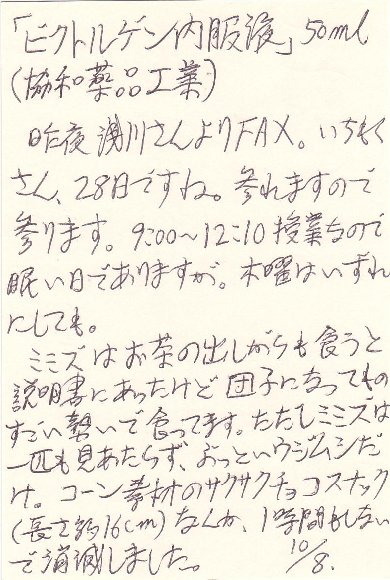 「ビクトルゲン内服液」50ml
(協和薬品工業)
昨夜湧川さんよりFAX。いちもく
さん、28日ですね。参れますので
参ります。9:00〜12:10授業なので
眠い日でありますが。木曜はいずれ
にしても。
ミミズはお茶の出しがらも食うと
説明書にあったけど団子になってもの
すごい勢いで食ってます。ただしミミズは
一匹も見あたらず、ぶっといウジムシだ
け。コーン素材のサクサクチョコスナック
(長さ約16cm)なんか、1時間もしない
で消滅しました。
10/8.